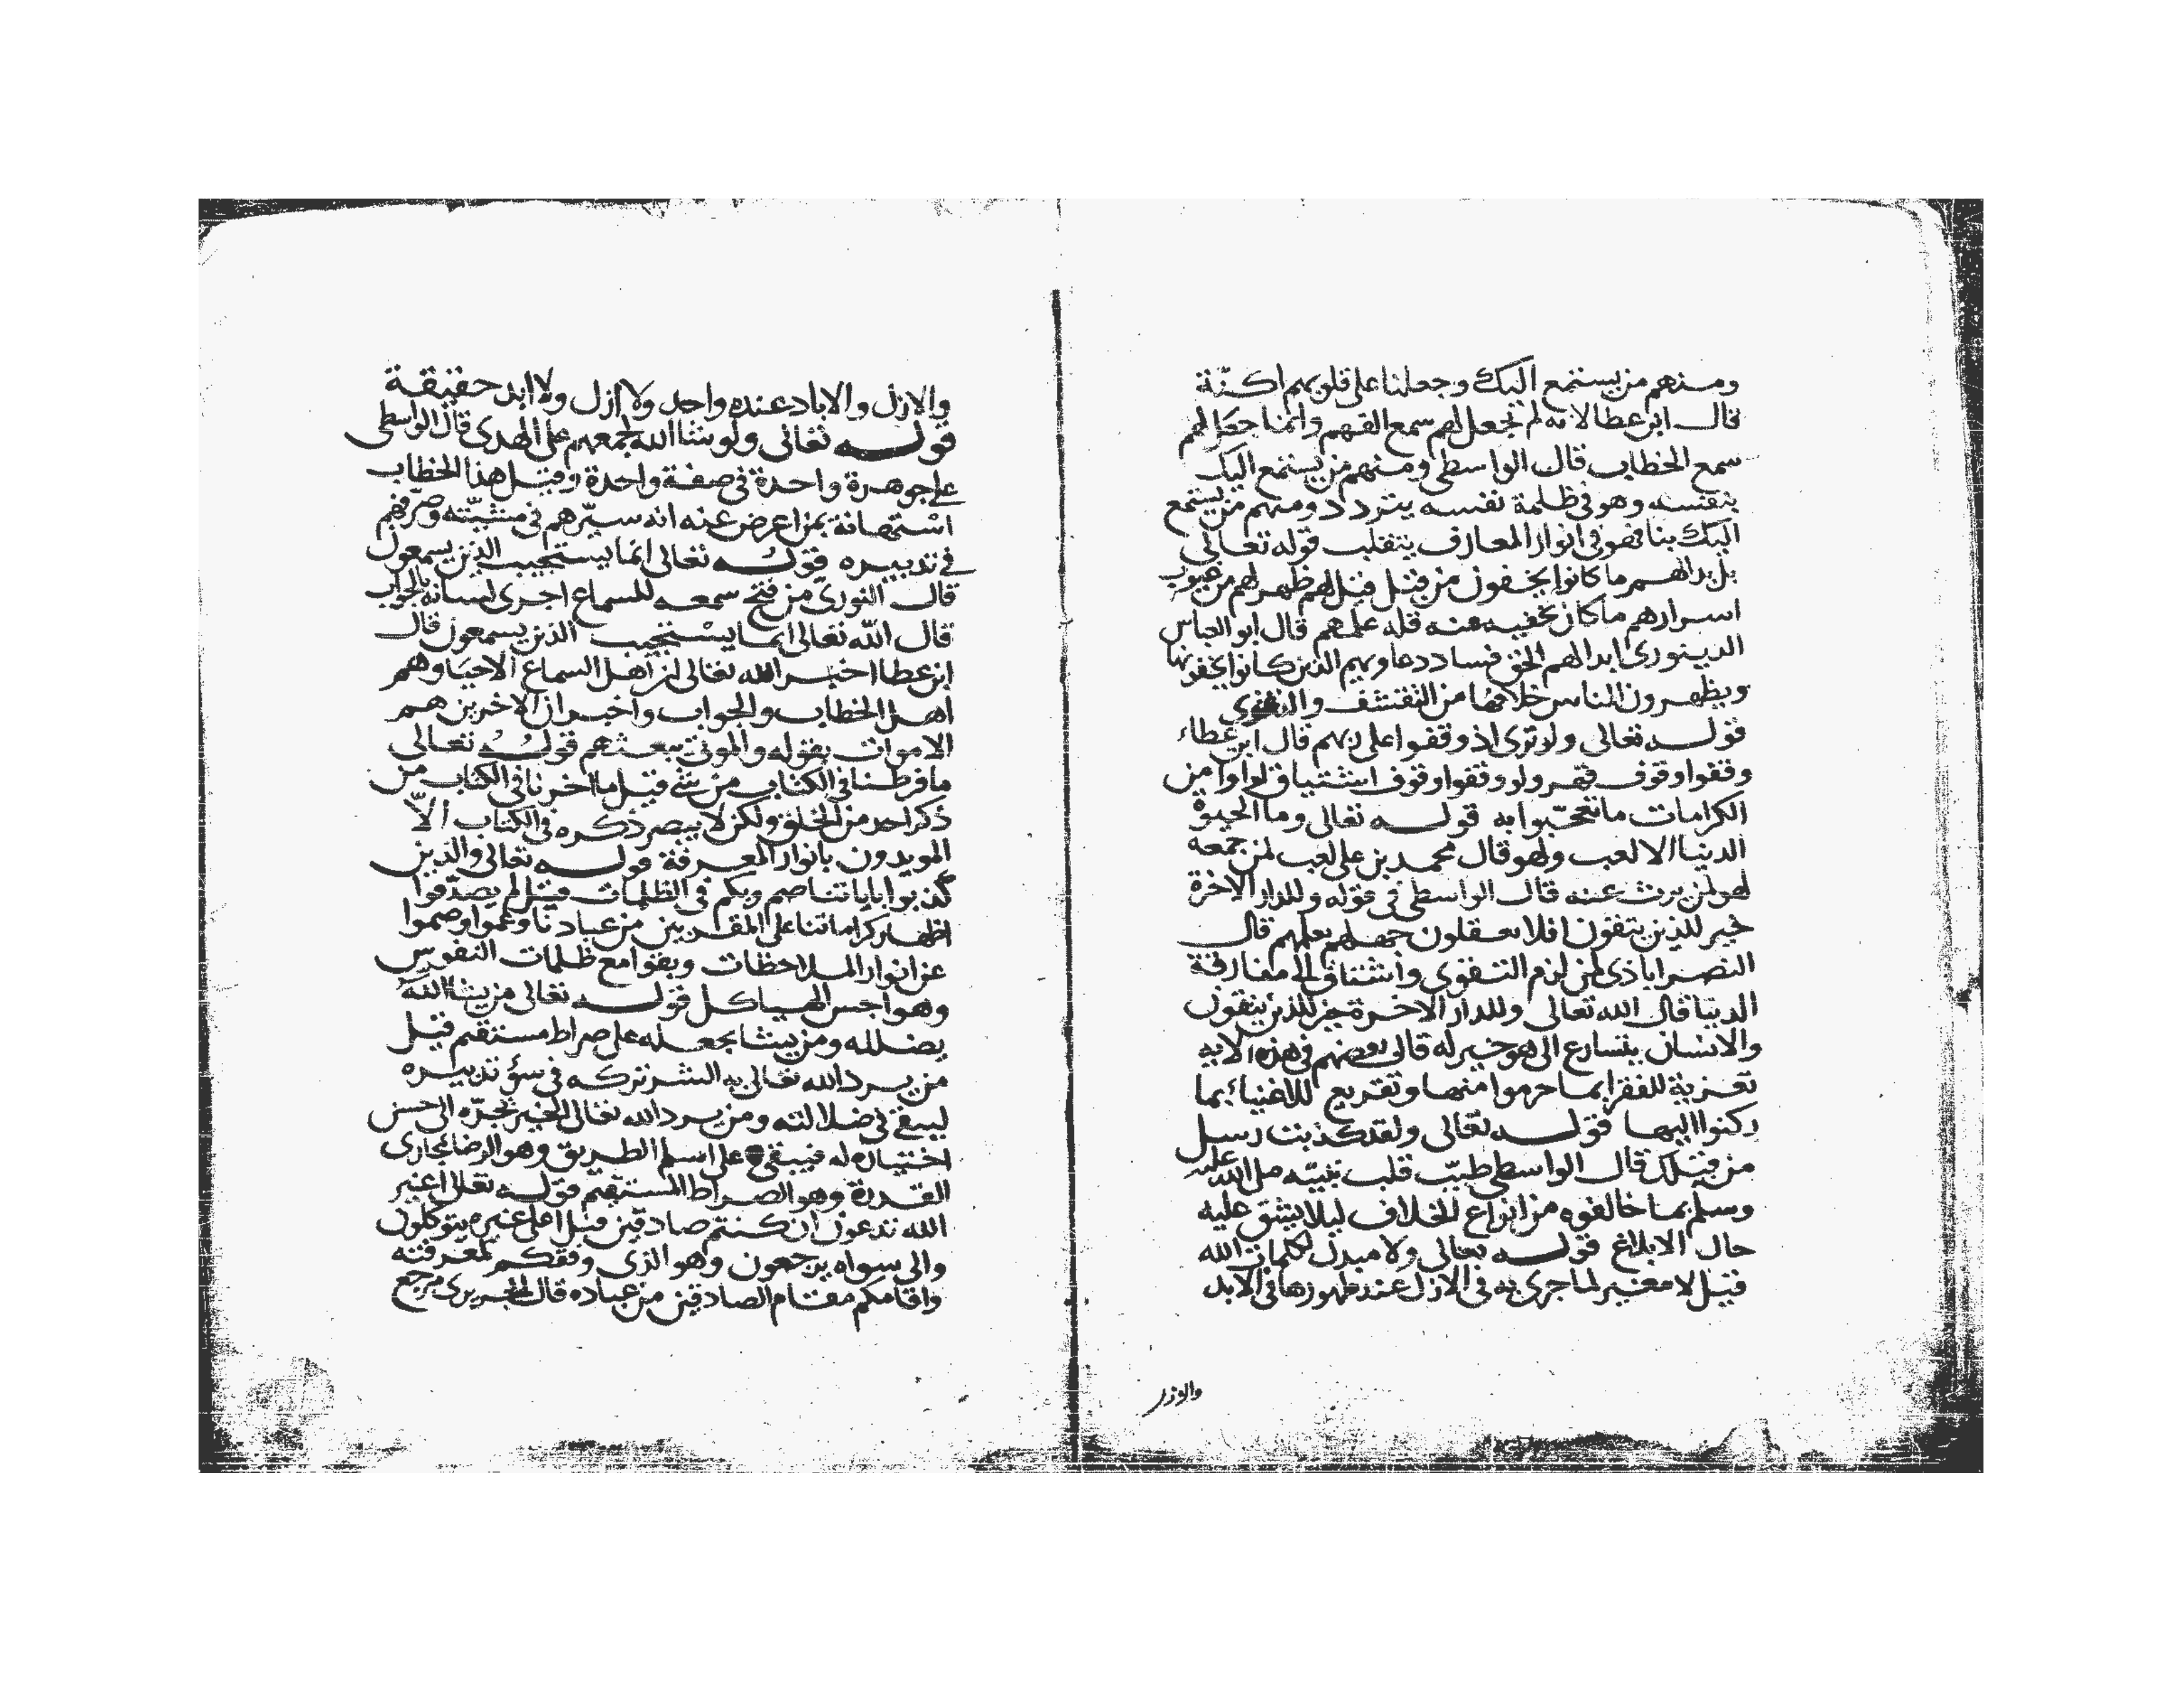 ومنهم من يستمع اليك وجعلنا على قلوبهم اكنّة
قال ابن عطا لانه لم يجعل لهم سمع الفهم وانما جعل لهم
سمع الخطاب قال الواسطى ومنهم من يستمع اليك
بنفسه وهو فى ظلمة نفسه يتردد ومنهم من يستمع
اليك بنا فهو فى انوار المعارف يتقلب قوله تعالى
بل بدا لهم ما كانوا يخفون من قبل قيل لهم ظهر لهم من عيوب
اسرارهم ما كان يخفيه عنه قلة علمهم قال ابو العباس
الدينورى ابدا لهم الحق فساد دعاويهم الذين كانوا يخفونها
ويظهرون للناس خلافها من التقشف والتقوى
قوله تعالى ولو ترى اذ وقفوا على ربهم قال ابن عطاء
وقفوا وقوف قهر ولو وقفوا وقوف اشتياق لراوا من
الكرامات ما تعجّبوا به قوله تعالى وما الحيوة
الدنيا الا لعب ولهو قال محمد بن على لعب لمن جمعه
لهو لمن يرث عنه قال الواسطى فى قوله وللدار الاخرة
خير للذين يتقون افلا تعقلون جهلهم بعلمهم قال
النصراباذى لمن لزم التقوى واشتاق الى مفارقة
الدنيا قال الله تعالى وللدار الاخرة خير للذين يتقون
والانسان يتسارع الى هو خير له قال بعضهم فى هذه الايه
تعزية للفقرا بما حرموا منها وتقريع للاغنياء بما
ركنوا اليها قوله تعالى ولقد كذبت رسل
من قبلك قال الواسطى طيّب قلب نبيّه صلى الله عليه
وسلم بما خالفوه من انواع الخلاف ليلا يشق عليه
حال الابلاغ قوله تعالى ولا مبدل لكلمات الله
قيل لا مغير لما جرى به فى الازل عند ظهورها فى الابد
والازل
والازل والاباد عنده واحد ولا ازل ولا ابد حقيقة
قوله تعالى ولو شا الله لجمعهم على الهدى قال الواسطى
على جوهرة واحدة فى صفة واحدة وقيل هذا الخطاب
استهانة بمن اعرض عنه انه سيّرهم فى مشيّته وصرّفهم
فى تدبيره قوله تعالى انما يستجيب الذين يسمعون
قال النورى من فتح سمعه للسماع اجرى لسانه بالجواب
قال الله تعالى انما يستجيب الذين يسمعون قال
ابن عطا اخبر الله تعالى ان اهل السماع الاحيا وهم
اهل الخطاب والجواب واخبر ان الاخرين هم
الاموات بقوله والموتى يبعثهم قوله تعالى
ما فرطنا فى الكتاب من شئ قيل ما اخرنا فى الكتاب من
ذكر احد من الخلق ولكن لا يبصر ذكره فى الكتاب الاّ
المويدون بانوار المعرفة قوله تعالى والذين
كذبوا باياتنا صم وبكم فى الظلمات قيل لم يصدقوا
اظهار كراماتنا على المقربين من عبادنا وعموا وصموا
عن انوار الملاحظات وبقوا مع ظلمات النفوس
وهواجس الهياكل قوله تعالى من يشا الله
يضلله ومن يشا يجعله على صراط مستقيم قيل
من يرد الله تعالى به الشر تركه فى سؤ تدبيره
ليبقى فى ضلالته ومن يرد الله تعالى الخير يجرّه الى حسن
اختياره له فيبقى على اسلم الطريق وهو الرضا بمجارى
القدرة وهو الصراط المستقيم قوله تعالى اغير
الله تدعون ان كنتم صادقين قيل اعلى غيره يتوكلون
والى سواه يرجعون وهو الذى وفقكم لمعرفته
واقامكم مقام الصادقين من عباده قال الجريرى مرجع